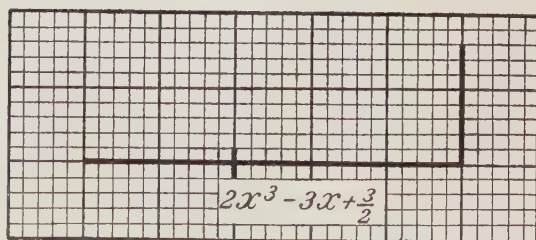 2x³ - 3x + 3/2